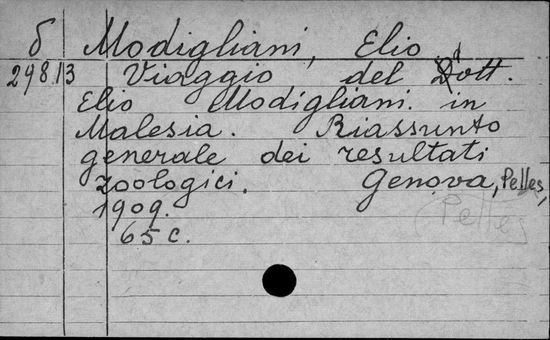 δ Modigliani, Elio.
298.13 Viaggio del Dott.
Elio Modigliani. in
Malesia. Riassunto
generale dei resultati
zoologici. Genova, Pelles,
1909. (Pelles
65 c.